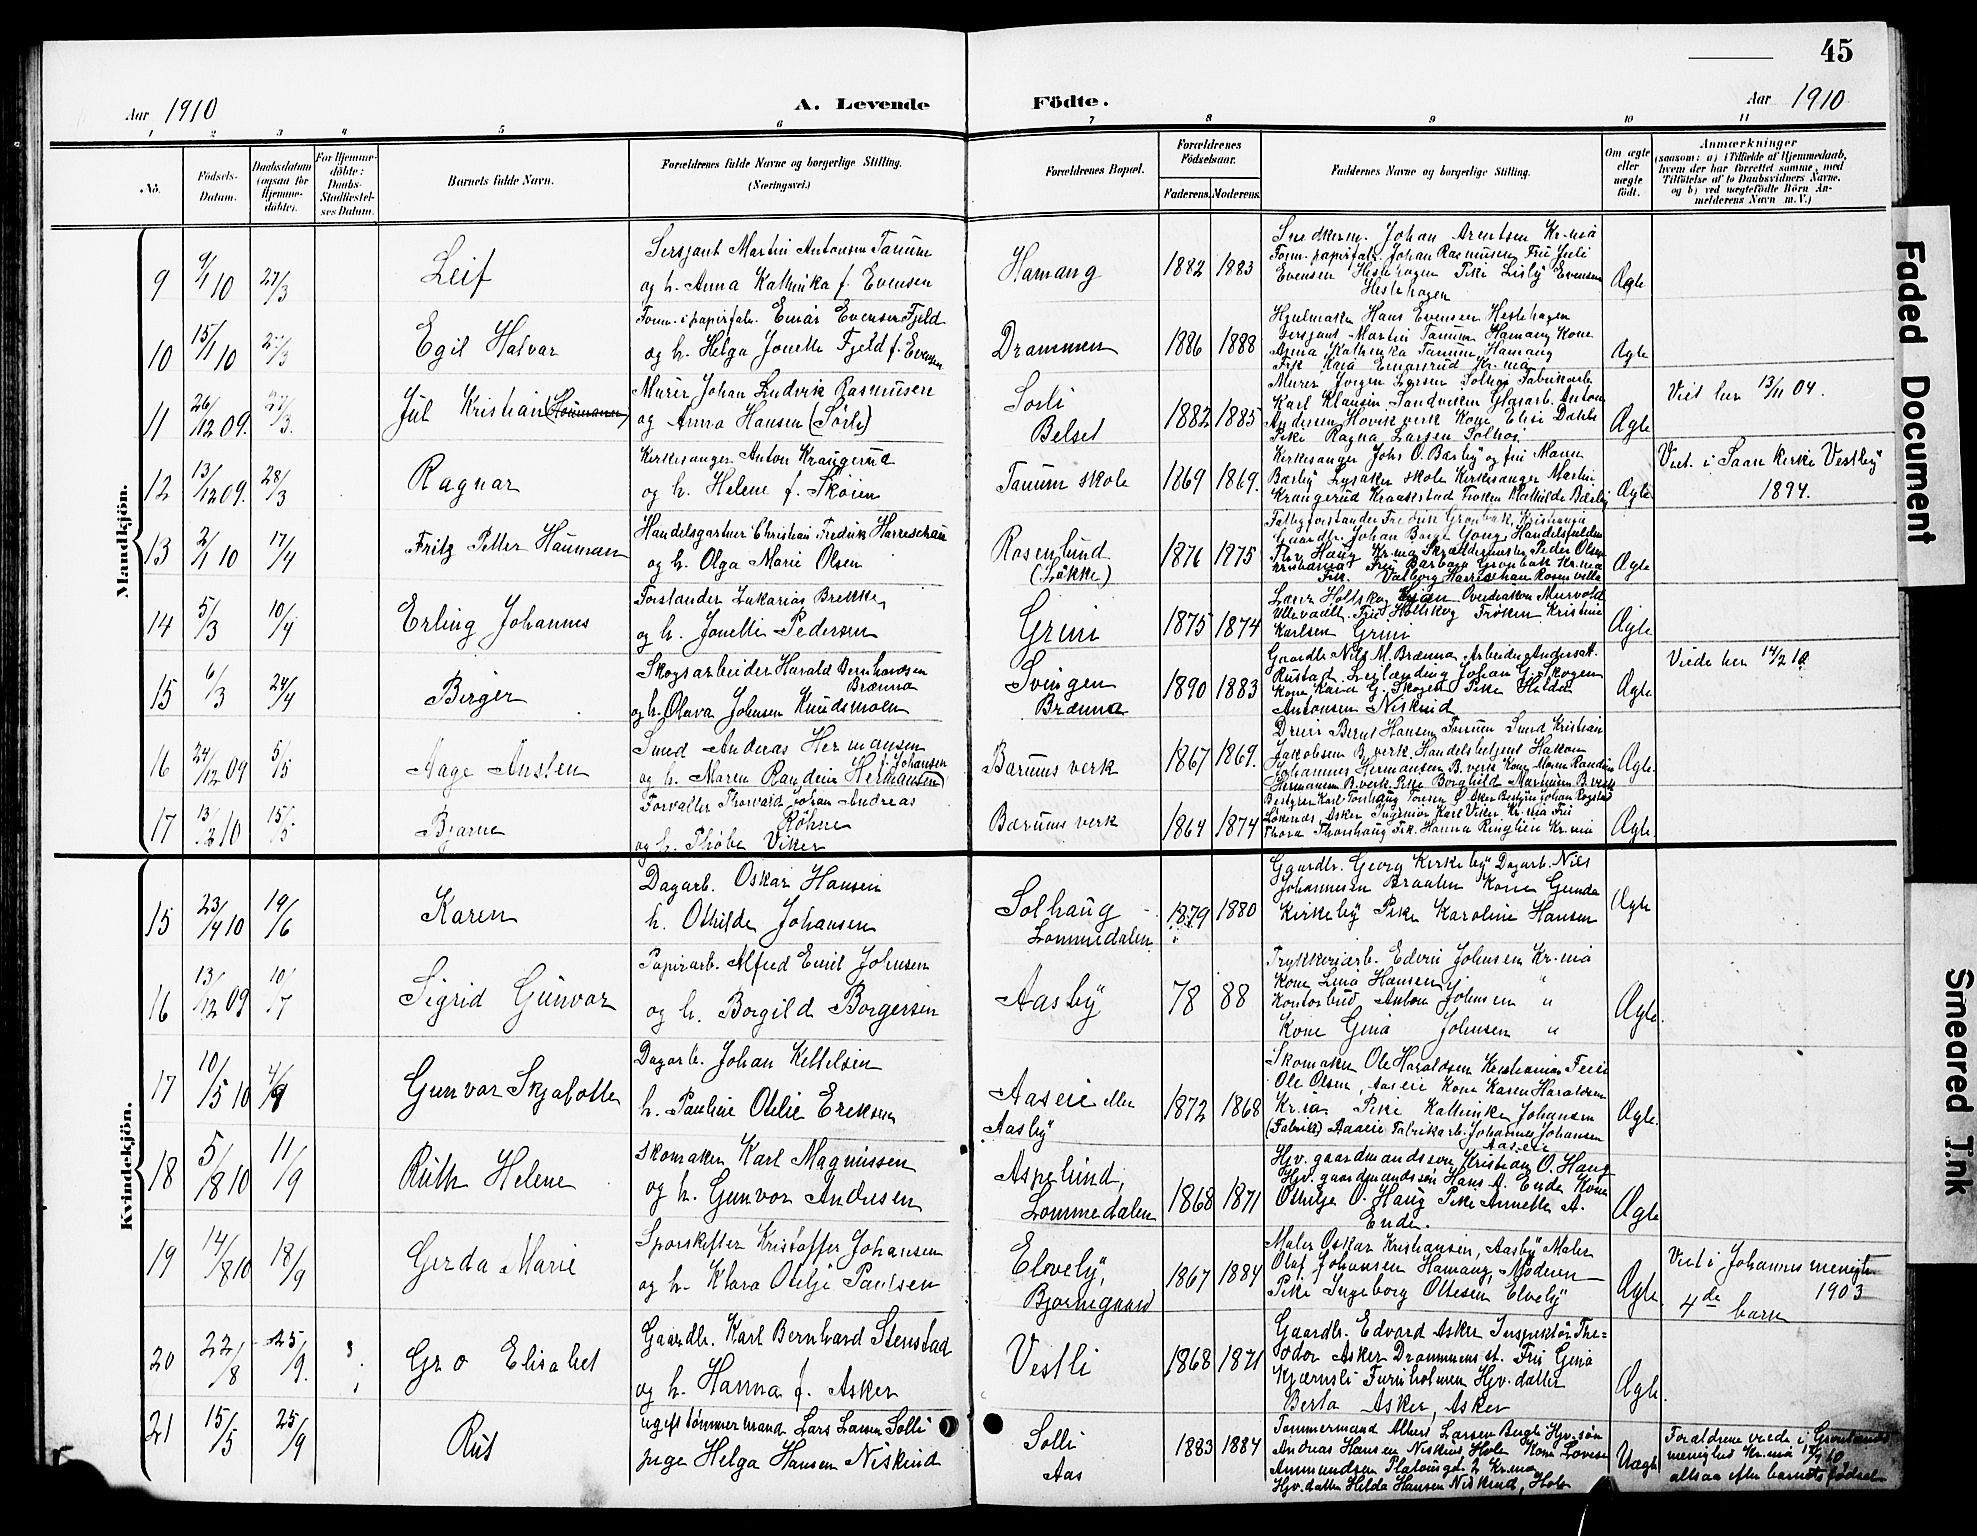 45
Aar 1910
A. Levende Födte.
Aar 1910
1 2 3 4 5 6 7 8 9 10 11
No.
Födsels-Datum.
Daabsdatum (ogsaa for Hjemme-döbte).
For Hjemme-döbte: Daabs-Stadfæstel-ses Datum.
Barnets fulde Navn.
Forældrenes fulde Navne og borgerlige Stilling. (Næringsvei.)
Forældrenes Bopæl.
Forældrenes Födselsaar.
Faderens. Moderens.
Faddernes Navne og borgerlige Stilling.
Om ægte eller uægte födt.
Anmærkninger
(saasom: a) i Tilfælde af Hjemmedaab, hvem der har forrettet samme, med Tilföielse af to Daabsvidners Navne, og b) ved uægtefödte Börn Anmelderens Navn m. V.)
Mandkjön.
9 9/1 10 27/3 Leif
Sersjant Martin Antonsen Tanum
og h. Anna Kathinka f. Evensen
Hamang 1882 1883
Snedkerm. Johan Arentsen Kr.nia
Form. papirfabr. Johan Rasmussen Fru Juli
Evensen Hestehagen Pike Lisby Evensen
Hestehagen
Ægte
10 15/1 10 27/3 Egil Halvar
Form. i papirfabr. Einar Evensen Fjeld
og h. Helga Jonette Fjeld f. Evensen
Drammen 1886 1888
Hjulmaker Hans Evensen Hestehagen
Sersjant Martin Tanum Hamang Kone
Anna Kathinka Tanum Hamang
Frk Kaia Einarsrud Kr.nia
Ægte
11 26/12 09. 27/3. Jul Kristian
Murer Johan Ludvik Rasmussen
og Anna Hansen (Sörli)
Sorli
Belset
1882 1885
Murer Jörgen Larsen Solhog Fabrikarb
Karl Klausen Sandviken Glasarb. Anton
Andersen Hovik verk Kone Elise Dahls
Pike Ragna Larsen Solhog
Ægte
Viet her 13/11 04.
12 13/12 09. 28/3 Ragnar
Kirkesanger Anton Kraugerud
og h. Helene f. Skøien
Tanum skole 1869 1869.
Kirkesanger Johs O. Bærby og fru Maren
Bærby Lysaker skole Kirkesanger Martin
Kraugerud Kraakstad Frøken Mathilde Bærby
Ægte
Viet. i Saan Kirke Vestby
1894.
13 2/1 10 17/4 Fritz Petter Hauman
Handelsgartner Christian Fredrik Harreschau
og h. Olga Marie Olsen
Rosenlund
(Løkke)
1876 1875
Fattigforstander Fredrik Grønbæk, Kristiania
Gaardbr. Johan Borge Jong, Handelsfuldm
Thv. Haug Kr.nia Skræddermester Peder Olsen
Kristiania Fru Barbara Grønbæk Kr.nia
Frk. Valborg Harreschau Rosenvilla
Ægte
14 5/3 10/4 Erling Johannes
Forstander Zakarias Brekke
og h. Jonette Pedersen
Grini 1875 1874
Lærer Holtskog Overdiakon Murvold
Ullevaal. Fru Holtskog Frøken Kristine
Karlsen Grini
Ægte
15 6/3 24/4 Birger
Skogsarbeider Harald Bernhardsen
Brænna
og h. Olava Johnsen Knudsmoen
Svingen
Brænna
1890 1883
Gaardbr Nils M. Brænna, Arbeider Anders A.
Rustad Leilænding Johan G. Skogen
Kone Kaia G. Skogen Pike Hilda
Antonsen Niskind
Ægte
Viede her 14/2 10.
16 24/12 09 5/5 Aage Austen
Smed Andreas Hermansen
og h. Maren Randine f. Johansen Hermansen
Bærums verk 1867 1869.
Dreier Bernt Hansen Tanum Smed Kristian
Jakobsen B. verk. Handelsbetjent Hakon
Johannes Hermansen B. verk Kone Maren Randine
Hermansen B. verk. Pike Borghild Martinsen B. verk
Ægte.
17 13/2 10 15/5. Bjarne
Forvalter Thorvald Johan Andreas
Röhne
og h. Thöbe Viker
Bærums verk 1864 1874
Bestyrer Karl Torshaug Tonsen Ö. Aker Bestyrer Johan Rogstad
Løkenes Asker Ingeniør Karl Viker Kr.nia Fru
Thora Thorshaug Frk. Hanna Ringlien Kr.nia
Ægte.
Kvindekjön.
15 23/4 10 19/6 Karen
Dagarb. Oskar Hansen
h. Othilde Johansen
Solhaug
Lommedalen
1879 1880
Gaardbr. Georg Kirkeby Dagarb. Nils
Johannesen Braaten Kone Gunda
Kirkeby Pike Karoline Hansen
Ægte
16 13/12 09 10/7 Sigrid Gunvor
Papirarb. Alfred Emil Johnsen
og h. Borgild Borgersen
Aasby 78 88
Trykkeriarb. Edvin Johnsen Kr.nia
Kone Lina Hansen "
Kontorbud Anton Johnsen "
Kone Gina Johnsen "
Ægte.
17 10/5 10 4/9 Gunvor Skjalotte
Dagarb. Johan Kettelsen
h. Pauline Otilie Eriksen
Aaseie eller
Aasby
1872 1868
Skomaker Ole Haraldsen Kristiania Feier
Ole Olsen, Aaseie Kone Karen Haraldsen
Kr.ia Pike Kathinka Johansen
(Fabrik) Aaseie Fabrikarb. Johannes Johansen
Aaseie
Ægte.
18 5/8 10 11/9 Ruth Helene
Skomaker Karl Magnussen
og h. Gunvor Andersen
Aspelund,
Lommedalen
1868 1871
Hjv. gaardmandssøn Kristian O. Haug
Hjv. gaardmandssøn Hans A. Ende Kone
Othilje O. Haug Pike Annette A.
Ende.
Ægte
19 14/8 10 18/9 Gerda Marie
Sporskifter Kristoffer Johansen
og h. Klara Otilje Paulsen
Elvely,
Bjørnegaard
1867 1884
Maler Oskar Kristiansen, Aasby Maler
Olaf Johansen Hamang, Moderen
Pike Ingeborg Ottesen Elvely
Ægte.
Viet i Johannes menigh
1903
4de barn
20 22/8 25/9. Gro Elisabet
Gaardbr. Karl Bernhard Stenstad
og h. Hanna f. Asker
Vestli 1868 1871
Gaardbr. Edvard Asker Inspektør The=
odor Asker Drammens st. Fru Gina
Kjærnsli Furuholmen Hjv. datter
Berta Asker, Asker
Ægte.
21 15/5 25/9 Rut
ugift tømmermand Lars Larsen Solli
pige Helga Hansen Niskind
Solli
Aas
1883 1884
Tømmermand Albert Larsen Hjv. søn
Andreas Hansen Niskind Hole Kone Lovise
Ammundsen Platousgt. 2 Kr.nia
Hjv. datter Hilda Hansen Niskind, Hole
Uægte
Forældrene viede i Grønlands
menighed Kr.nia 10,
altsaa efter barnets fødsel
Faded Document
Smeared Ink